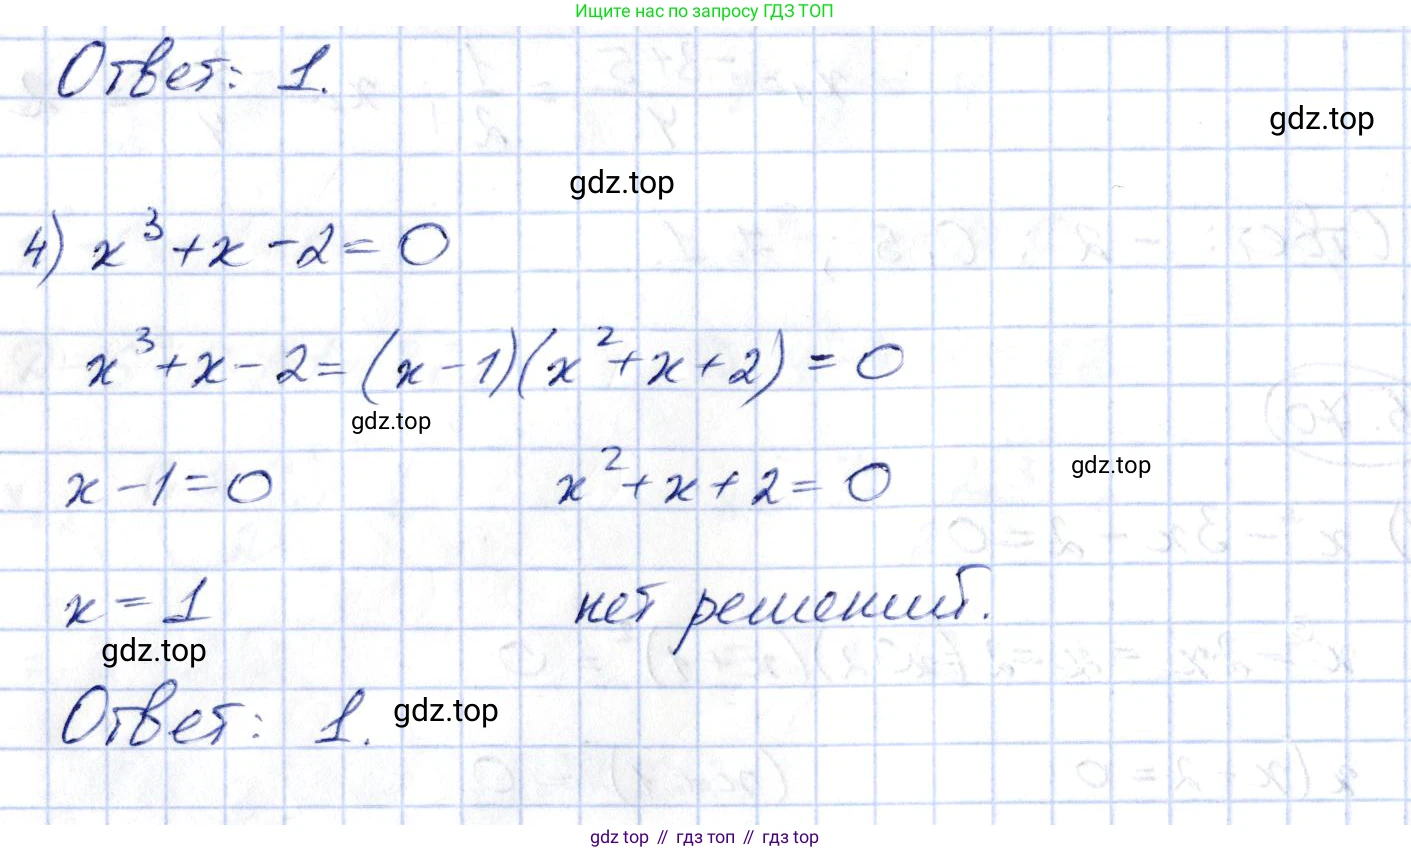 Ищите нас по запросу ГДЗ ТОП
Ответ: 1.
gdz.top
gdz.top
4) x³ + x - 2 = 0
x³ + x - 2 = (x - 1)(x² + x + 2) = 0
gdz.top
x - 1 = 0 x² + x + 2 = 0
gdz.top
x = 1 нет решений.
gdz.top
Ответ: 1.
gdz.top
gdz top // гдз топ // гдз top